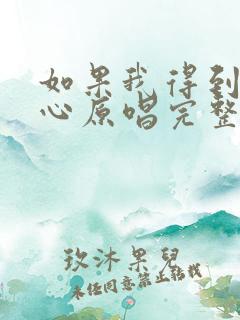 如果我得到
心原唱完整
玫沐果兒
未经同意禁止转载